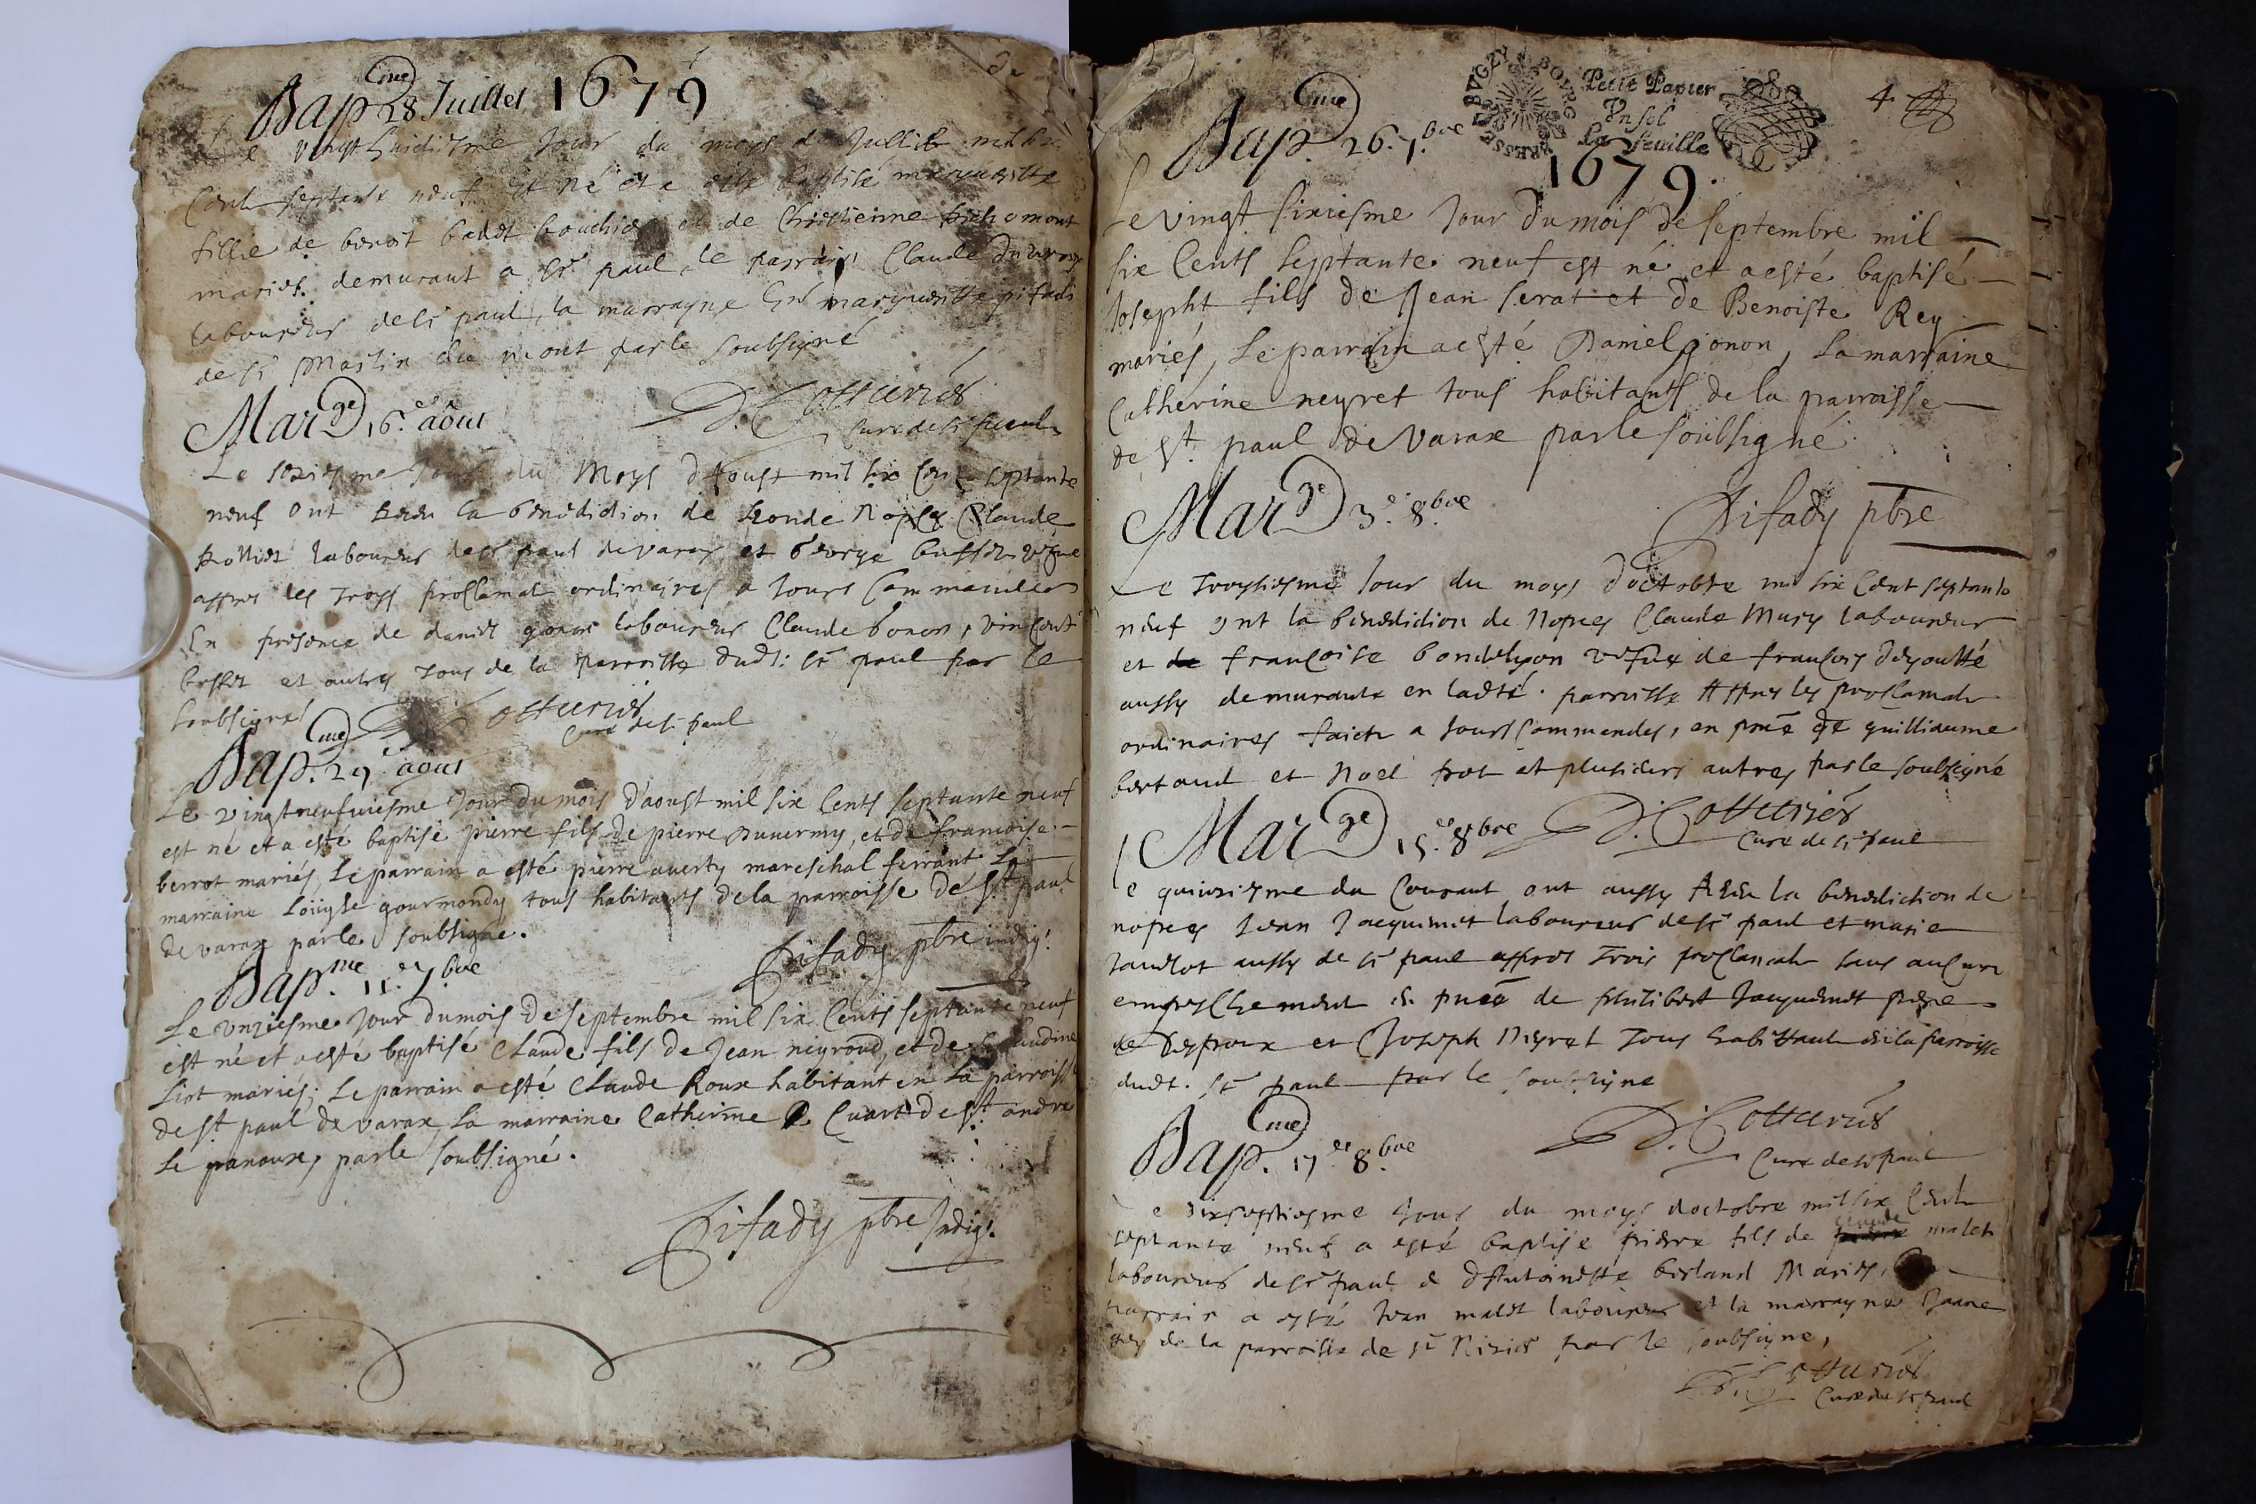 Bap.me 28 Juillet 1679
Le vingt huictiesme Jour du moys de Juillet mil six
Cent septante neuf est né et a esté baptisé margueritte
fille de benoit badet bouchier et de Christienne
mariés demurant a St paul, le parrain Claude
laboureur de St paul, la marrayne margueritte pifadi
de St Martin du mont par le soubsigné
D. Cotturier
Curé de St paul
Mar.ge 16.e aout
Le seziesme Jour du Moys d'Aoust mil six Cent septante
neuf ont Receu la benediction de Nopces Claude
laboureur de St paul de varax et
appres les Troys proclamat ordinaires a Jours Commandes
En presence de daniel gonon laboureur Claude bonon, vincent
et autres Tous de la parroisse dudt: St paul par le
soubsigné
D. Cotturier
Curé de St paul
Bap.me 29.e aout
Le vingtneufuiesme Jour du mois d'aoust mil six Cents septante neuf
est né et a esté baptisé pierre fils de pierre Duuerny, et de francoise
berrot mariés, Le parrain a esté pierre auerty mareschal ferrant La
marraine Loüyse gourmondy tous habitants de la parroisse de St paul
de varax par le soubsigné.
Pifady pbre indig.
Bap.me 11.e 7.bre
Le unziesme Jour du mois de septembre mil six Cents septante neuf
est né et a esté baptisé Claude fils de Jean neyroud, et de Claudine
Liot mariés; Le parrain a esté Claude Roux habitant en la parroisse
de St. paul de varax, La marraine Catherine Cuart de St. andre
Le panoux, par le soubsigné.
Pifady pbre Indig.
4
BRESSE BVGEY BOVRG
Petit Papier
Un sol
La feuille
Bap.me 26. 7.bre
1679.
Le vingt sixiesme Jour du mois de septembre mil
six Cents septante neuf est né et a esté baptisé
Josepht fils de Jean serat et de Benoiste Rey
mariés, Le parrain a esté Daniel gonon, La marraine
Catherine neyret tous habitants de la parroisse
de St. paul de varax par le soubsigné
Pifady pbre
Mar.ge 3.e 8.bre
Le Troysiesme Jour du moys d'octobre mil six Cent septante
neuf ont la benediction de Nopces Claude Mury laboureur
et de françoise bondelyon vefue de françois
aussy demurante en ladte. parroisse Appres les proclamat
ordinaires faicte a Jours Commendes, en pnce de guilliaume
bertaud et Noel prot et plusieurs autres par le soubsigné
D. Cotturier
Curé de St paul
Mar.ge 15.e 8.bre
Le quinziesme du Courant ont aussy Receu la benediction de
nopces Jean Jacquemet laboureur de St paul et marie
Jandot aussy de St paul appres Trois proclamat sans aucun
empeschement En pnce de philibert Jacquemet pere
de l'espoux et Joseph Neyret Tous habittant de la parroisse
dudt. St paul par le soubsigne
D. Cotturier
Curé de St paul
Bap.me 17.e 8.bre
Le dixseptiesme Jour du moys doctobre mil six Cent
septante neuf a esté baptisé pierre fils de Claude malet
laboureur de St paul & d'Antoinette berland Mariés, Le
parrain a esté Jean malet laboureur et la marrayne Jeane
Rey de la parroisse de St Nizier par le soubsigne,
D. Cotturier
Curé de St paul